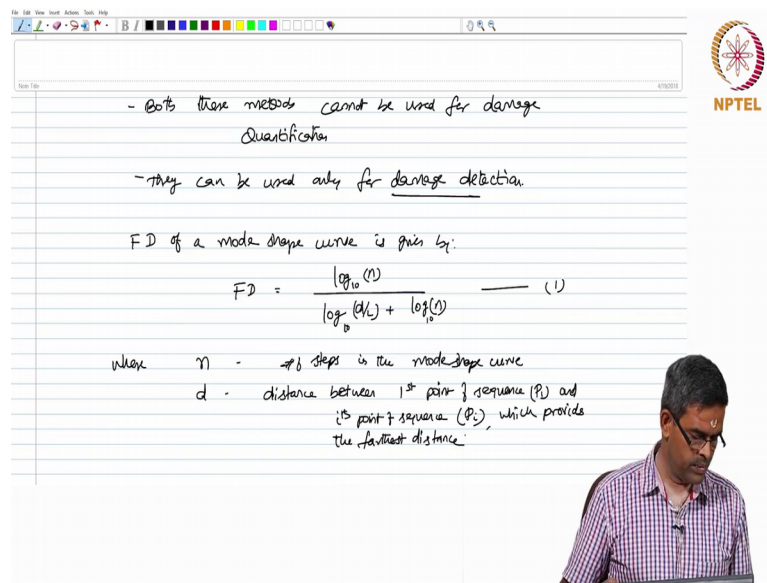 File Edit View Insert Actions Tools Help
B I
Note Title
4/19/2018
NPTEL
- Both these methods cannot be used for damage
Quantification
- They can be used only for damage detection.
FD of a mode shape curve is given by:
FD = log10 (n) / log10 (d/L) + log10(n) —— (1)
where n - # of steps in the mode shape curve
d - distance between 1st point of sequence (P1) and
ith point of sequence (Pi), which provides
the farthest distance.